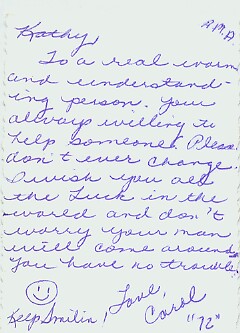 R.M.A.
Kathy,
To a real warm
and understand-
ing person. Your
always willing to
help someone. Please
don't ever change.
I wish you all
the luck in the
world and don't
worry your man
will come around.
You have no trouble.
Keep Smilin',
Love,
Carol
"72"